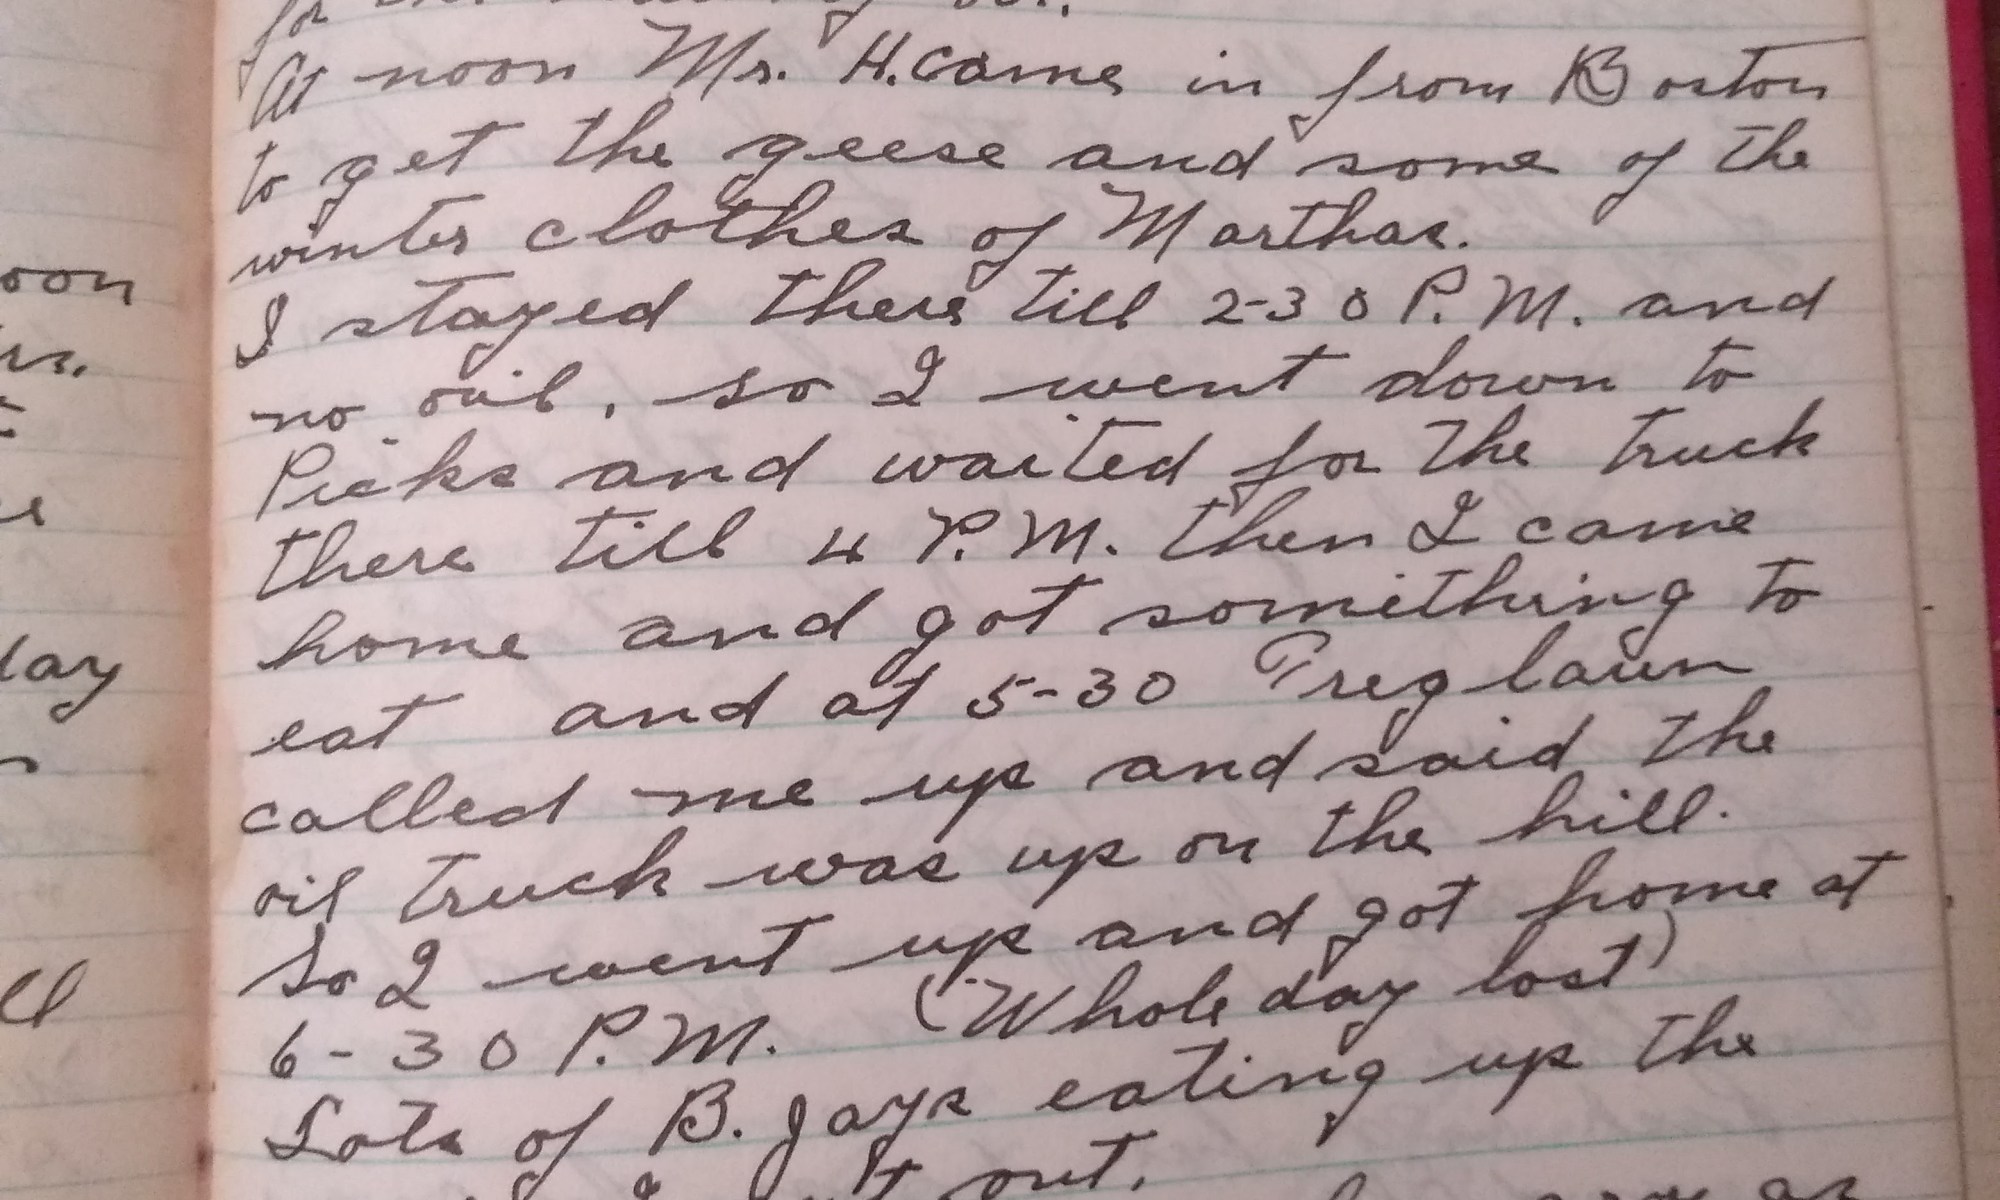 for the
At noon Mr. H. came in from Boston
to get the geese and some of the
winter clothes of Marthas.
I stayed there till 2-30 P.M. and
no oil, so I went down to
Picks and waited for the truck
there till 4 P.M. then I came
home and got something to
eat and at 5-30 Treglawn
called me up and said the
oil truck was up on the hill.
So I went up and got home at
6-30 P.M. (Whole day lost)
Lots of B. Jays eating up the
I out.
oon
rs.
day
ll